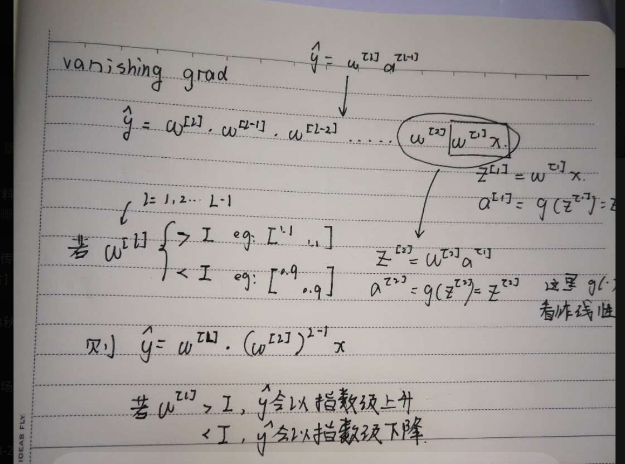 ŷ = w^[L] a^[L-1]
vanishing grad
ŷ = w^[L] · w^[L-1] · w^[L-2] ······ w^[2] w^[1] x.
z^[1] = w^[1] x.
a^[1] = g(z^[1]) = z
l = 1, 2 ··· L-1
若 w^[l] { > I eg: [1.1 1.1]
< I eg: [0.9 0.9]
z^[2] = w^[2] a^[1]
a^[2] = g(z^[2]) = z^[2]
这里 g(·)
看作线性
则 ŷ = w^[L] · (w^[l])^L-1 x
若 w^[l] > I, ŷ会以指数级上升
< I, ŷ会以指数级下降.
IDEAS FLY.